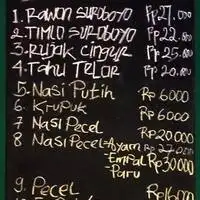 1. Rawon SUROBOYO Rp 27.000
2. TIMLO SUROBOYO Rp 22.500
3. Rujak Cingur Rp 25.000
4. TAHU TELOR Rp 20.000
5. Nasi Putih Rp 6000
6. Krupuk Rp 6000
7 Nasi Pecel Rp 20000
8 Nasi Pecel - Ayam Rp 27.000
- Empal Rp 30000
- Paru
9. Pecel Rp 16000